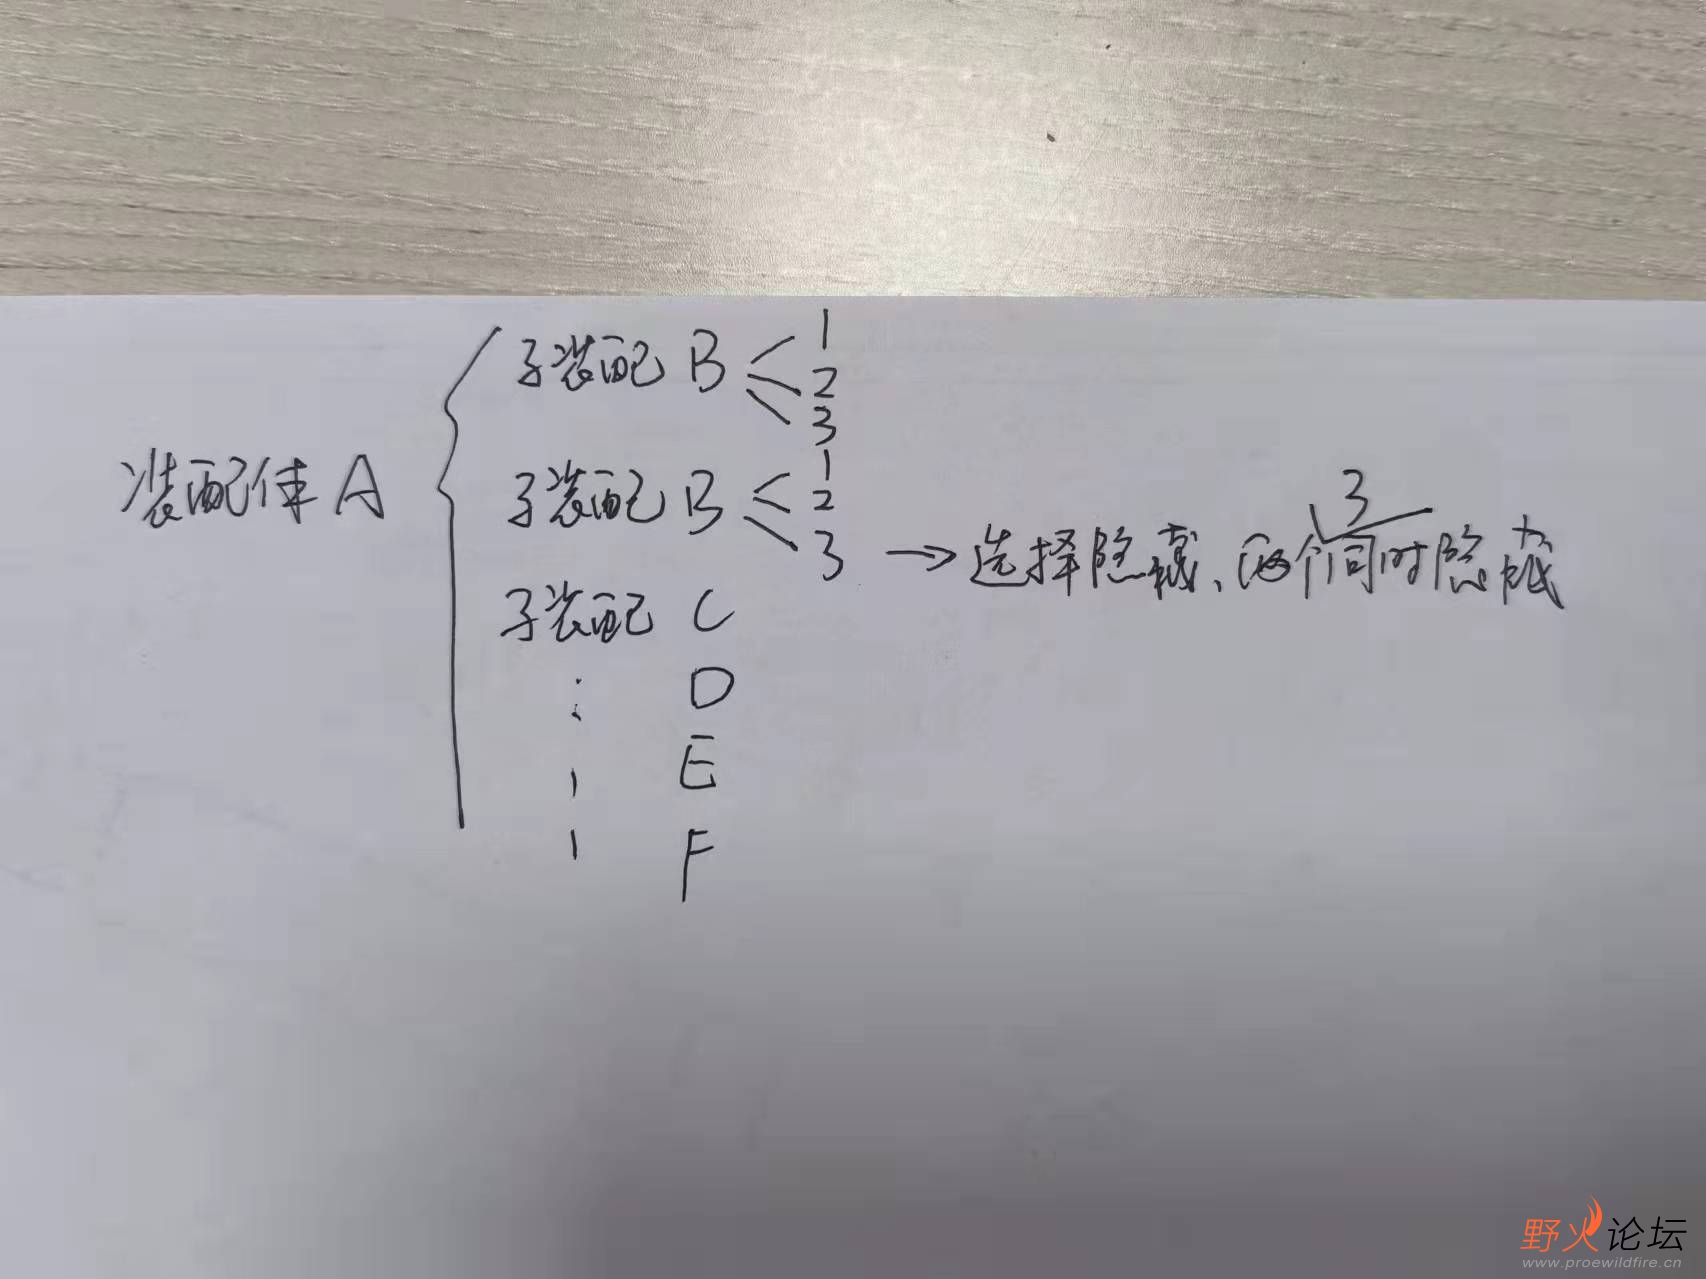 子装配 B 1
2
3
装配体 A
子装配 B 1
2
3 → 选择隐藏、两个3同时隐藏
子装配 C
D
E
F
野火论坛
www.proewildfire.cn